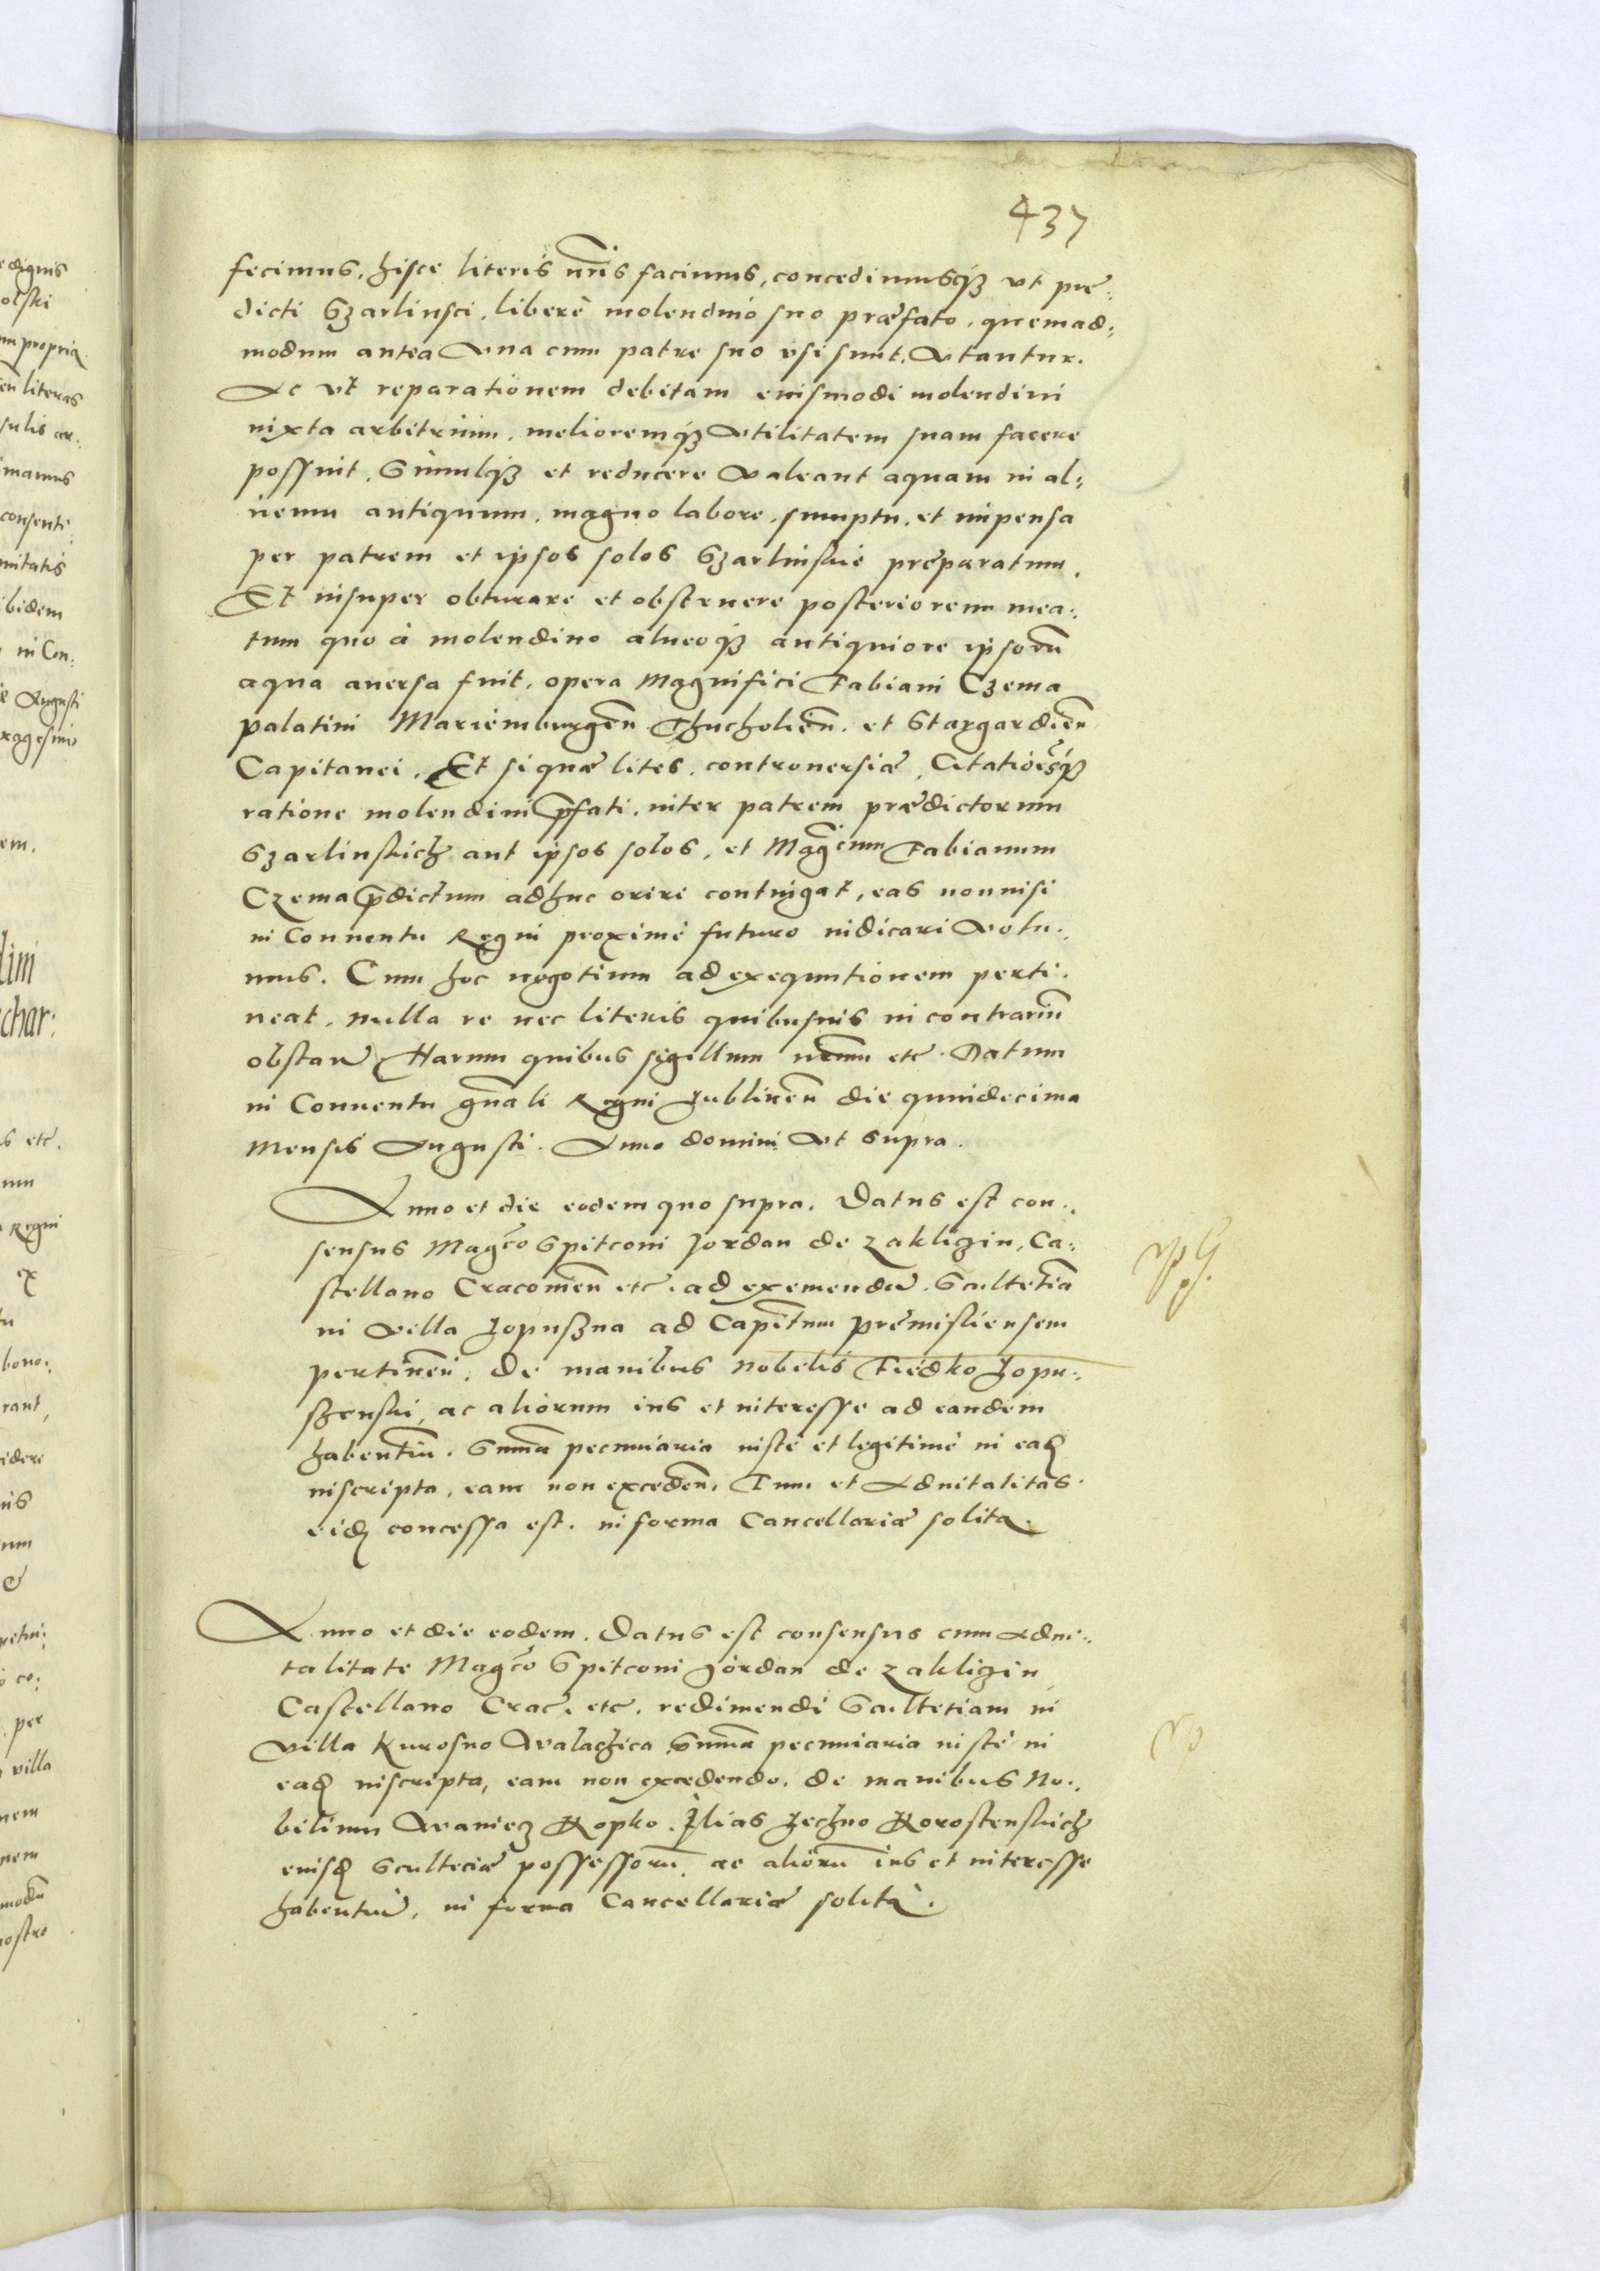 437
fecimus, hisce literis nr̃is facimus, concedimusq₃ vt præ-
dicti Szarlinsci, liberè molendino suo præfato, quemad-
modum antea vna cum patre suo vsi sunt, vtantur.
Ac vt reparationem debitam eiusmodi molendini
iuxta arbitrium, melioremq₃ vtilitatem suam facere
possint, Simulq₃ et reducere valeant aquam in al-
ueum antiquum, magno labore, sumptu, et impensa
per patrem et ipsos solos Szarlinskie præparatum.
Et insuper obturare et obstruere posteriorem mea-
tum quo à molendino alueoq₃ antiquiore ipsorũ
aqua auersa fuit, opera Magnifici Fabiani Czema
palatini Mariemburgeñ Thucholieñ. et Stargardieñ
Capitanei. Et si quæ lites, controuersiæ, Citatioẽsq₃
ratione molendini p̃fati, inter patrem prædictorum
Szarlinskich aut ipsos solos, et Mag̃cum Fabianum
Czema p̃dictum adhuc oriri contingat, eas non nisi
in Conuentu Regni proximè futuro iudicari volu-
mus. Cum hoc negotium ad exequutionem perti-
neat, nulla re nec literis quibusuis in contrariũ
obstañ. Harum quibus sigillum nr̃um etc. Datum
in Conuentu gñali Regni Lublineñ die quindecima
Mensis Augusti. Anno domini vt supra.
Anno et die eodem quo supra. Datus est con-
sensus Mag̃co Spitconi Jordan de Zakliczin, Ca-
stellano Cracouieñ etc. ad exemendũ. Scultetiã
in villa Lopuszna ad Capit̃num Præmisliensem
pertineñ. De manibus Nobilis Fiedko Lopu-
szenski, ac aliorum ius et interesse ad eandem
habentiũ. Sum̃a pecuniaria iustè et legitimè in ead̃
inscripta, eam non excedeñ. Tum et Aduitalitas
eid̃ concessa est. in forma Cancellariæ solita.
Anno et die eodem. Datus est consensus cum Adui-
talitate Mag̃co Spitconi Jordan de Zakliczin
Castellano Crac̃. etc. redimendi Scultetiam in
villa Kurosno Walachica sum̃a pecuniaria iustè in
ead̃ inscripta, eam non excedendo. de manibus No-
bilium Waniecz Kopko. Ilias Lechno Korostenskich
eiusd̃ Scultetiæ possessorũ, ac aliorũ ius et interesse
habentiũ, in forma Cancellariæ solita.